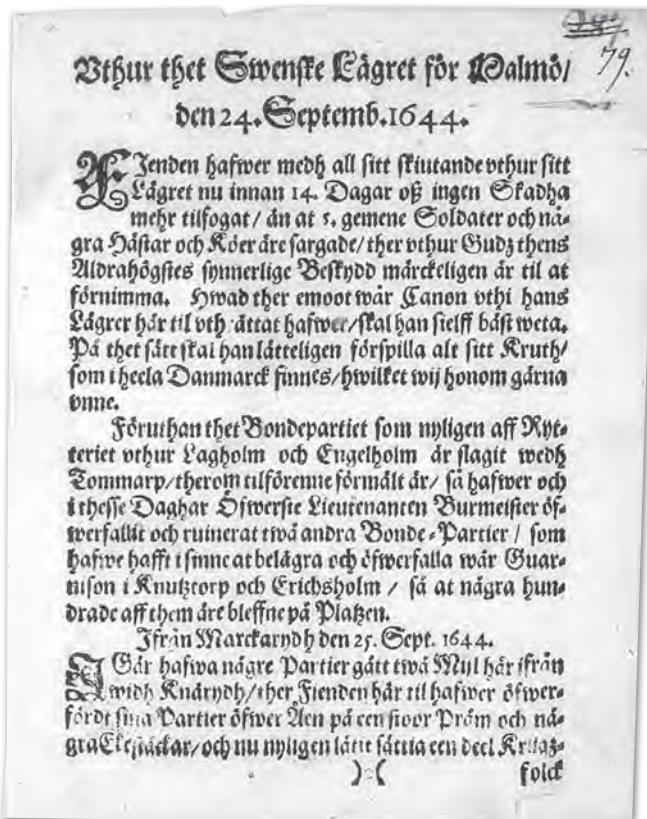 79.
Vthur thet Swenske Lägret för Malmö/
den 24. Septemb. 1644.
FJenden hafwer medh all sitt skiutande vthur sitt
Lägret nu innan 14. Dagar oß ingen Skadha
mehr tilfogat/ än at 5. gemene Soldater och nå-
gra Hästar och Köer äre sargade/ ther vthur Gudz thens
Aldrahögstes synnerlige Beskydd märckeligen är til at
förnimma. Hwad ther emoot wår Canon vthi hans
Lägrer här til vth rättat hafwer/ skal han sielff bäst weta.
På thet sätt skal han lätteligen förspilla alt sitt Kruth/
som i heela Danmarck finnes/ hwilket wij honom gärna
vnne.
Föruthan thet Bondepartiet som nyligen aff Ryt-
teriet vthur Lagholm och Engelholm är slagit wedh
Tommarp/ therom tilförenne förmält är/ så hafwer och
i thesse Daghar Öfwerste Lieutenanten Burmeister öf-
werfallit och ruinerat twå andra Bonde-Partier/ som
hafwe hafft i sinne at belägra och öfwerfalla wår Guar-
nison i Knutztorp och Erichsholm / så at några hun-
drade aff them äre bleffne på Platzen.
Jfrån Marckarydh den 25. Sept. 1644.
JGår hafwa någre Partier gått twå Myl här ifrån
widh Knärydh/ ther Fienden här til hafwer öfwer-
fördt sina Partier öfwer Åen på een stoor Pråm och nå-
gra Ekestäckar/ och nu nyligen låtit sättia een deel Krigz-
folck